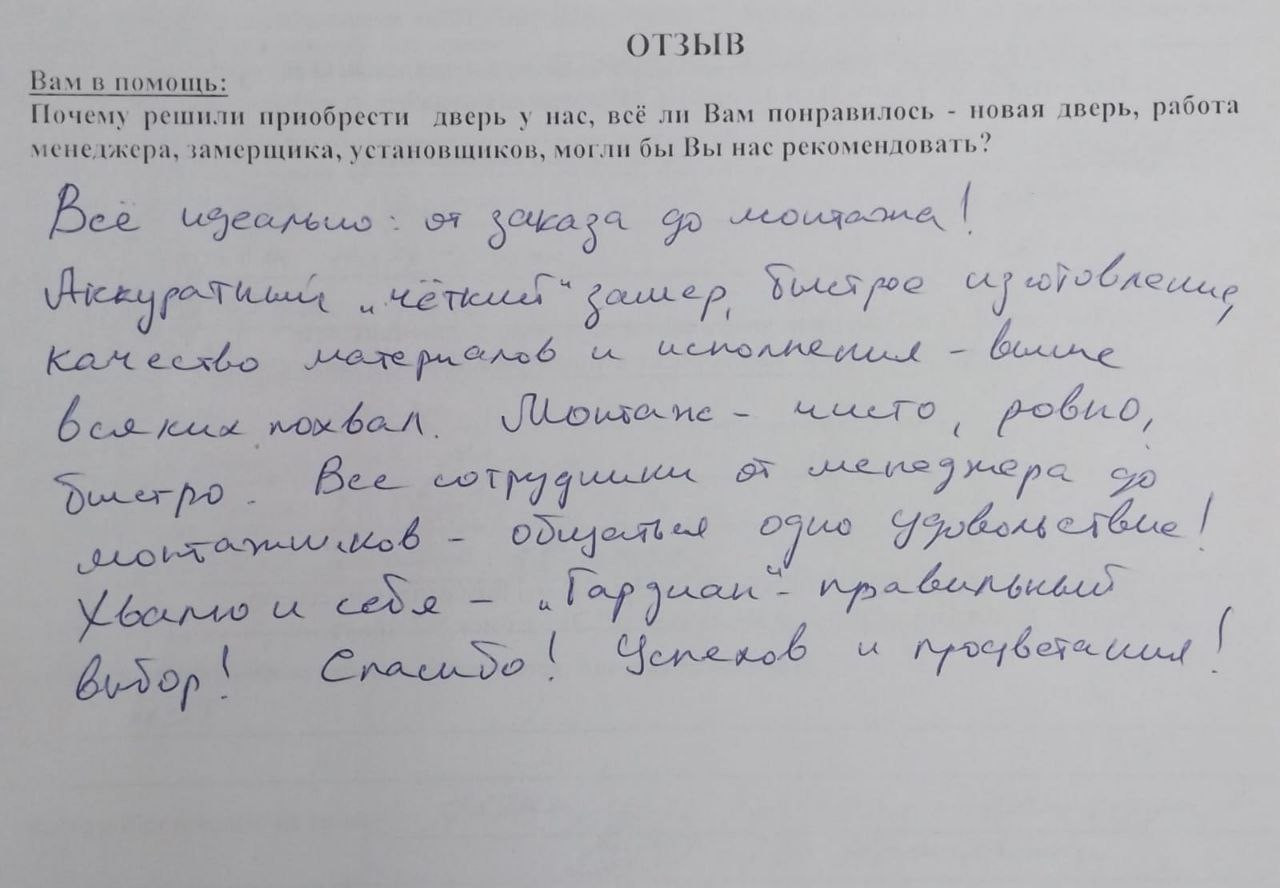 ОТЗЫВ
Вам в помощь:
Почему решили приобрести дверь у нас, всё ли Вам понравилось - новая дверь, работа
менеджера, замерщика, установщиков, могли бы Вы нас рекомендовать?
Всё идеально: от заказа до монтажа!
Аккуратный „чёткий“ замер, быстрое изготовление,
качество материалов и исполнения - выше
всяких похвал. Монтаж - чисто, ровно,
быстро. Все сотрудники от менеджера до
монтажников - общаться одно удовольствие!
Хвалю и себя - „Гардиан“ - правильный
выбор! Спасибо! Успехов и процветания!